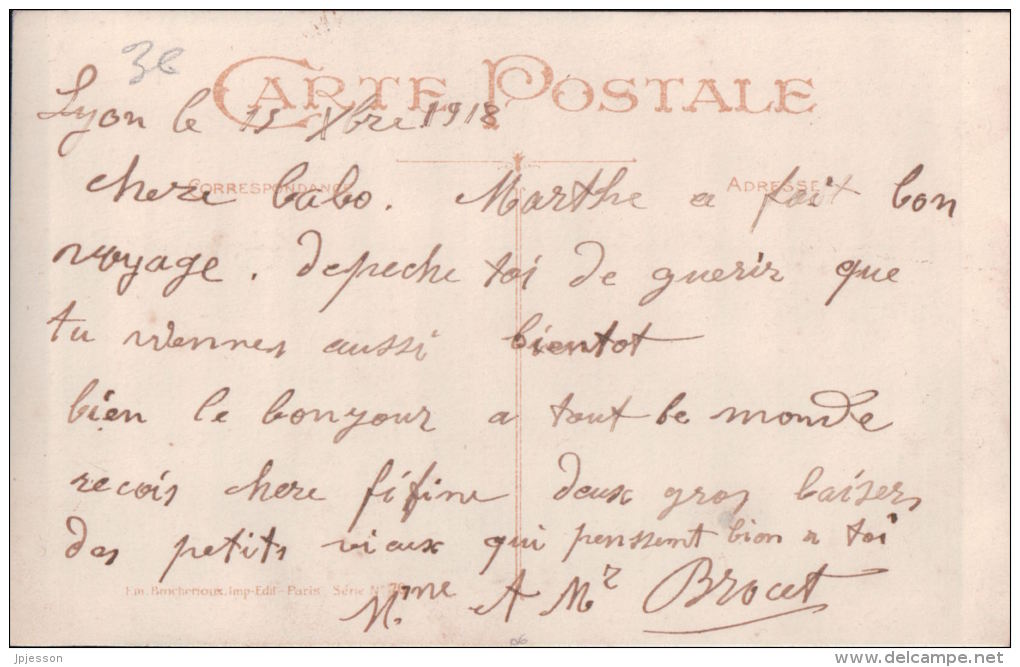 3€
CARTE POSTALE
Lyon le 15 Xbre 1918
CORRESPONDANCE
ADRESSE
chere babo. Marthe a fait bon
voyage. depeche toi de guerir que
tu viennes aussi bientot
bien le bonjour a tout le monde
recois chere fifine deux gros baisers
des petits vieux qui penssent bien a toi
Em. Brocherioux, Imp-Edit - Paris Série N°
Mme A Mr Brocet
jpjesson
www.delcampe.net